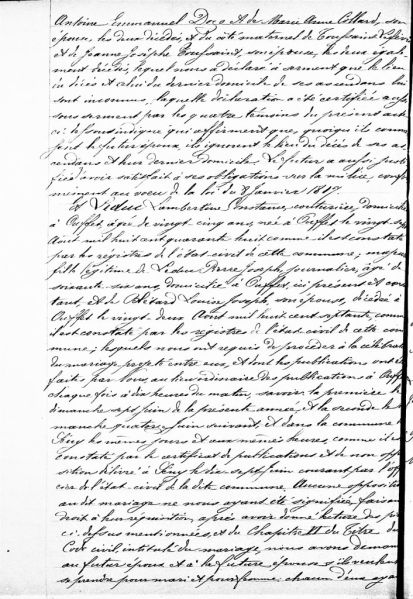 Antoine Emmanuel Doce et de Marie Anne Collard, son
épouse, les deux décédés, et du côté maternel de Toussaint
et de Jeanne Josèphe Toussaint, son épouse, les deux égale-
ment décédés, lequel nous a déclaré à serment que le lieu
du décès et celui du dernier domicile de ses ascendans lui
sont inconnus, laquelle déclaration a été certifiée aussi
sous serment par les quatre témoins du présent acte
ci-dessous indiqué qui affirment que, quoiqu'ils connais-
sent le futur époux, ils ignorent le lieu du décès de ses as-
cendans et leur dernier domicile. Le futur a aussi justi-
fié avoir satisfait à ses obligations sur la milice, confor-
mément au voeu de la loi du 8 Janvier 1817.
Et Lambertine Constance, couturière, domiciliée
à Ouffet, âgée de vingt cinq ans, née à Ouffet le vingt
Août mil huit cent quarante huit comme il est constaté
par les registres de l'état civil de cette commune; majeure,
fille légitime de Pierre Joseph, journalier, âgé de
soixante ans, domicilié à Ouffet, ici présent et consen-
tant, et de Louise Joseph, son épouse, décédée à
Ouffet le vingt deux Août mil huit cent septante, comme
il est constaté par les registres de l'état civil de cette com-
mune; lesquels nous ont requis de procéder à la célébration
du mariage projeté entre eux, et dont les publications ont été
faites par nous, au lieu ordinaire des publications à Ouffet
chaque fois à dix heures du matin, savoir: la première le
dimanche sept juin de la présente année, et la seconde le di-
manche quatorze juin suivant, et dans la commune de
les mêmes jours et aux mêmes heures, comme il est
constaté par le certificat de publications et de non oppo-
sition délivré à le sept juin courant par l'offi-
cier de l'état civil de la dite commune. Aucune opposition
au dit mariage ne nous ayant été signifiée, faisant
droit à leur réquisition, après avoir donné lecture des pièces
ci-dessus mentionnées, et du Chapitre VI du Titre du
Code civil, intitulé du mariage, nous avons demandé
au futur époux et à la future épouse s'ils veulent
se prendre pour mari et pour femme: chacun d'eux ayant